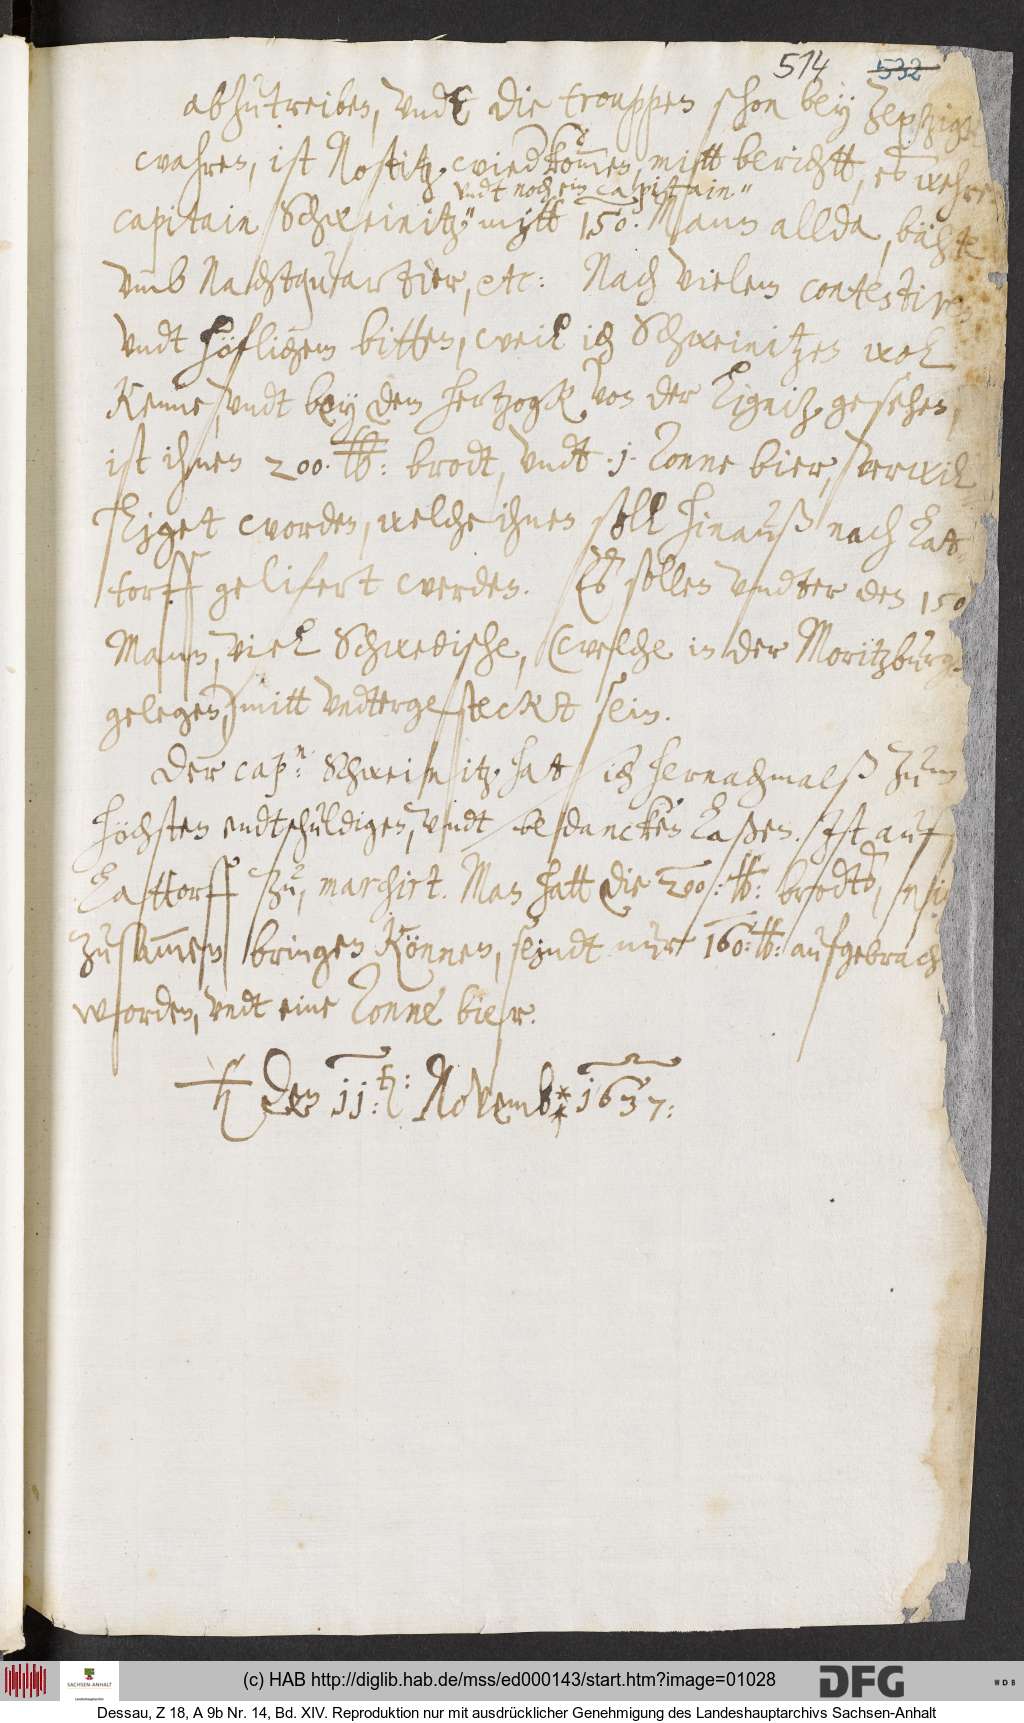 514 532
abzutreiben, vndt die trouppen schon bey Zepzigk
wahren, ist Nostitz, wiedkommen, mitt bericht, es wehre
vndt noch ein capitain
capitain Schweinitz, mitt 150. Mann allda, bähte
vmb Nachtquartier, etc: Nach vielem contestiren
vndt höflichem bitten, weil ich Schweinitzen wol
kenne, vndt bey dem hertzogk von der Lignitz, gesehen,
ist ihnen 200. lb: brodt, vndt .1. Tonne bier, verwil
liget worden, welche ihnen soll hinauß nach Lat
torff gelifert werden. Es sollen vndter den 150
Mann, viel Schwedische, (welche in der Moritzburgk
gelegen,) mitt vndtergesteckt sein.
Der cap.n: Schweinitz, hat sich hernachmalß zum
höchsten endtschuldigen, vndt bedancken laßen. Ist auf
Lattorff zu, marchirt. Man hatt die 200: lb: brodts, nicht
zusammen bringen können, seindt nur 160: lb: aufgebrach
worden, vndt eine Tonne bier.
♄ den 11.ten: Novemb: 1637:
(c) HAB http://diglib.hab.de/mss/ed000143/start.htm?image=01028
SACHSEN-ANHALT
DFG
WDB
Dessau, Z 18, A 9b Nr. 14, Bd. XIV. Reproduktion nur mit ausdrücklicher Genehmigung des Landeshauptarchivs Sachsen-Anhalt